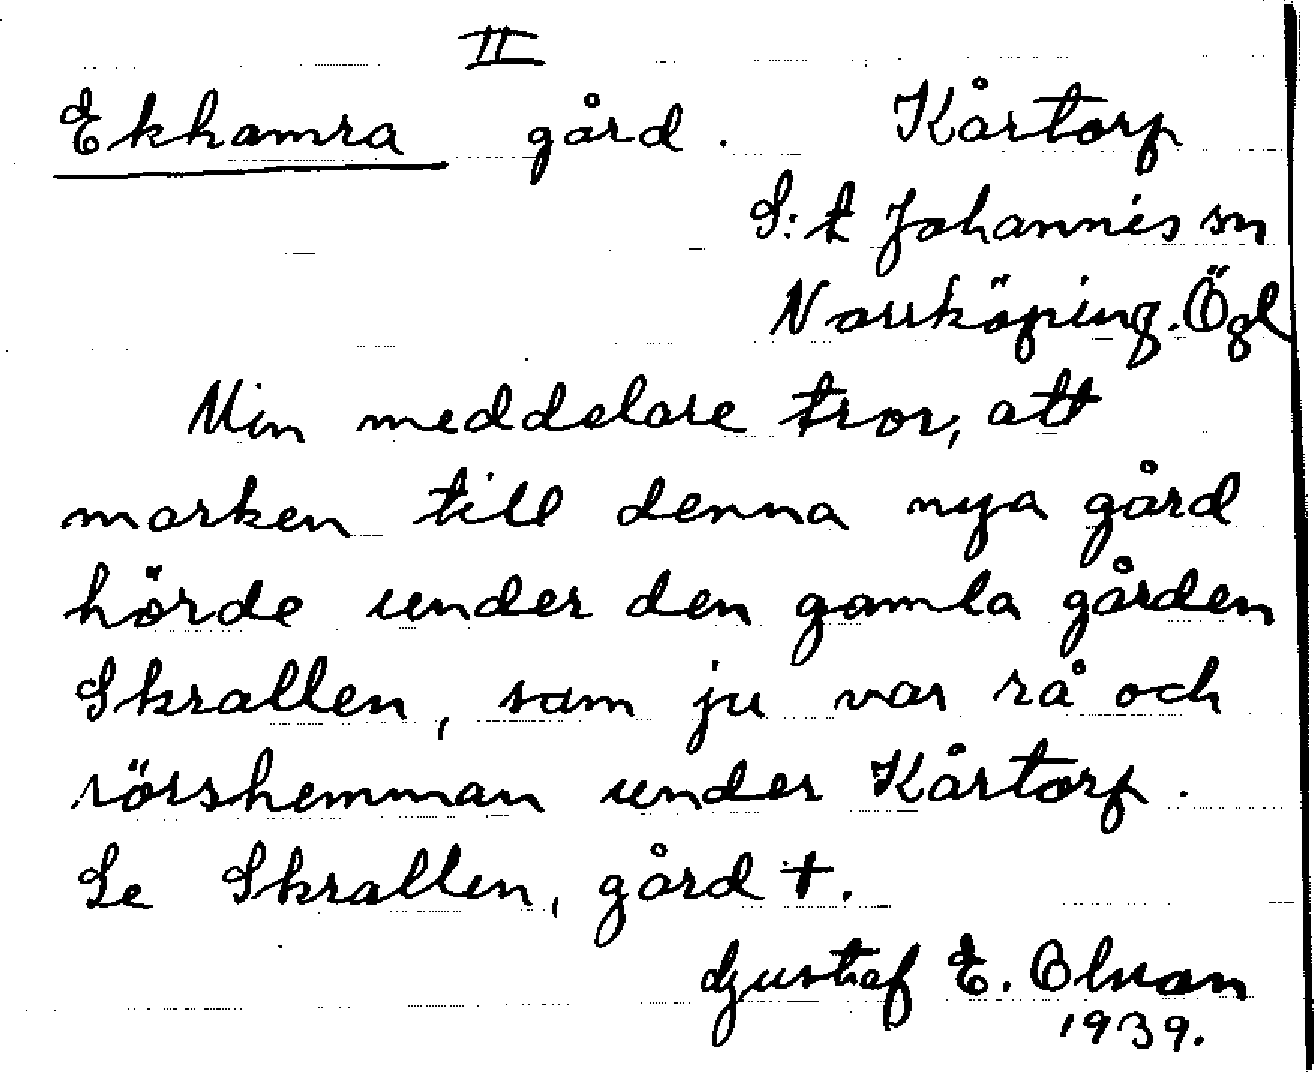 II
Ekhamra gård. Kårtorp
S:t Johannis sn
Norrköping. Ögl
Min meddelare tror, att
marken till denna nya gård
hörde under den gamla gården
Skrallen, som ju var rå och
rörshemman under Kårtorp.
Se Skrallen, gård †.
Gustaf E. Olson
1939.